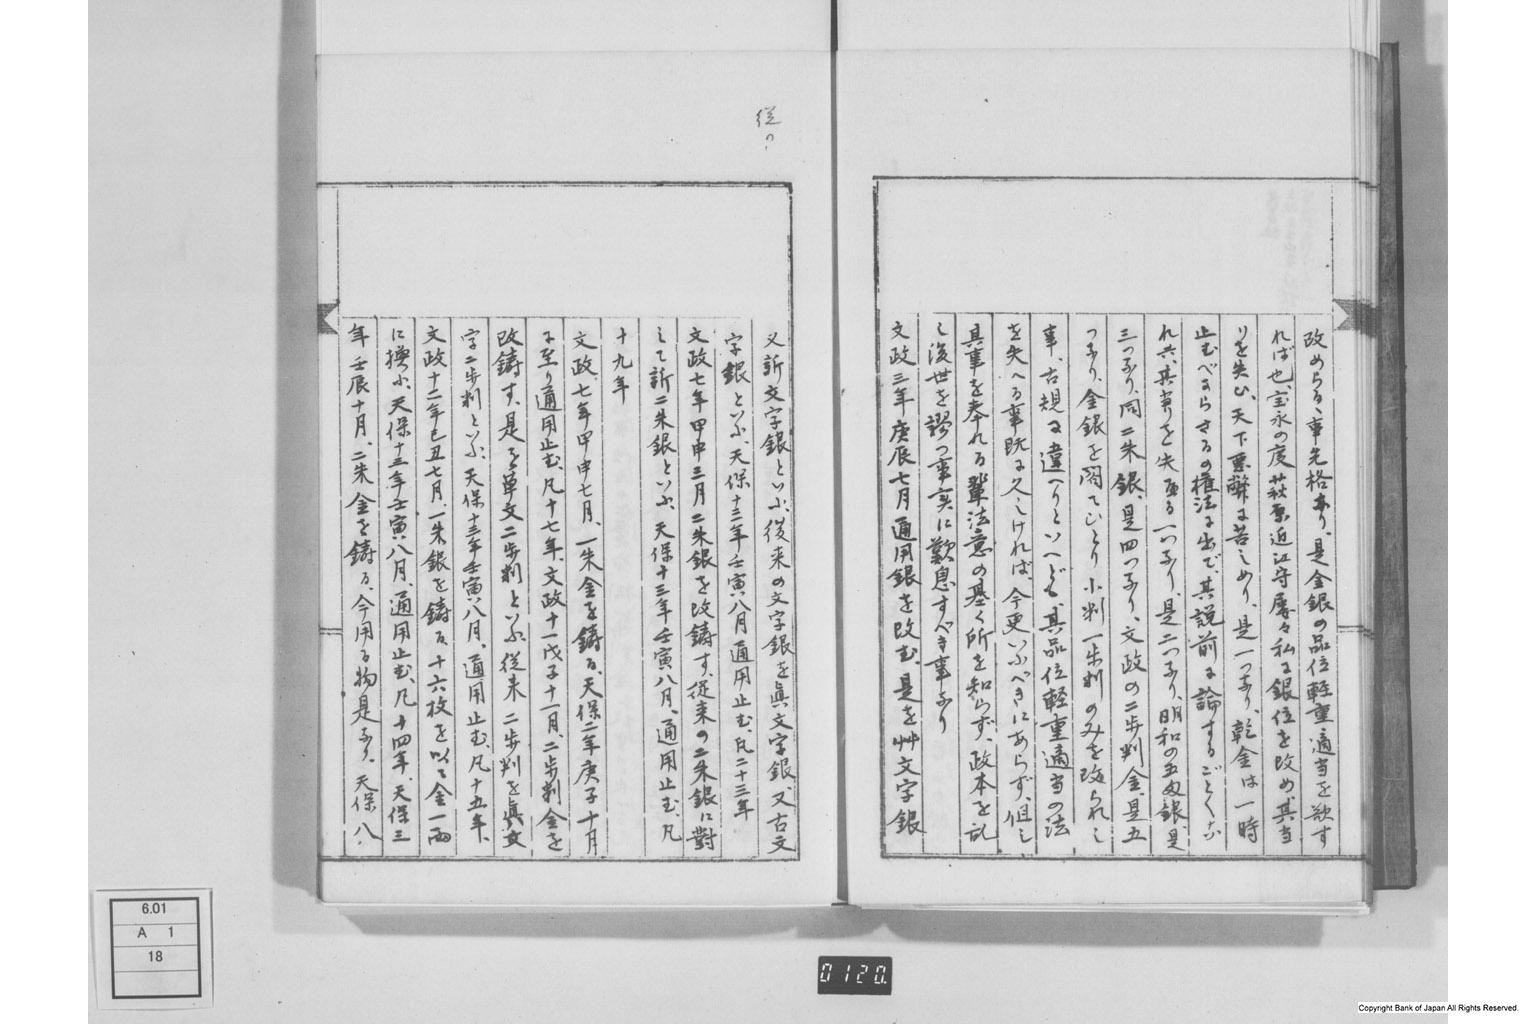 改めらるゝ事先格あり、是金銀の品位軽重適当を欲す
れば也、宝永の度萩原近江守屡々私に銀位を改め其当
りを失ひ、天下悪弊に苦しめり、是一つなり、乾金は一時
止むべからさるの権法に出で、其説前に論するごとくな
れ共、其当りを失へる一つなり、是二つなり、明和の五匁銀、是
三つなり、同二朱銀、是四つなり、文政の二歩判金、是五
つなり、金銀を閣てひとり小判一歩判のみを改られし
事、古規に違へりといへども其品位軽重適当の法
を失へる事既に久しければ、今更いふべきにあらず、但し
其事を奉れる輩法意の基く所を知らず、政本を乱
し後世を謬つ事実に歎息すべき事なり
文政三年庚辰七月通用銀を改む、是を艸文字銀
従カ
又新文字銀といふ、後来の文字銀を真文字銀又古文
字銀といふ、天保十三年壬寅八月通用止む、凡二十三年
文政七年甲申三月二朱銀を改鋳す、従来の二朱銀に対
して新二朱銀といふ、天保十三年壬寅八月、通用止む、凡
十九年
文政、七年甲申七月、一朱金を鋳る、天保二年庚子十月
に至り通用止む、凡十七年、文政十一戊子十一月、二歩判金を
改鋳す、是を草文二歩判といふ、従来二歩判を真文
字二歩判といふ、天保十三年壬寅八月、通用止む、凡十五年、
文政十二年己丑七月、一朱銀を鋳る、十六枚を以て金一両
に換ふ、天保十三年壬寅八月、通用止む、凡十四年、天保三
年壬辰十月、二朱金を鋳る、今用る物是なり、天保八、
6.01
A 1
18
0120.
Copyright Bank of Japan All Rights Reserved.